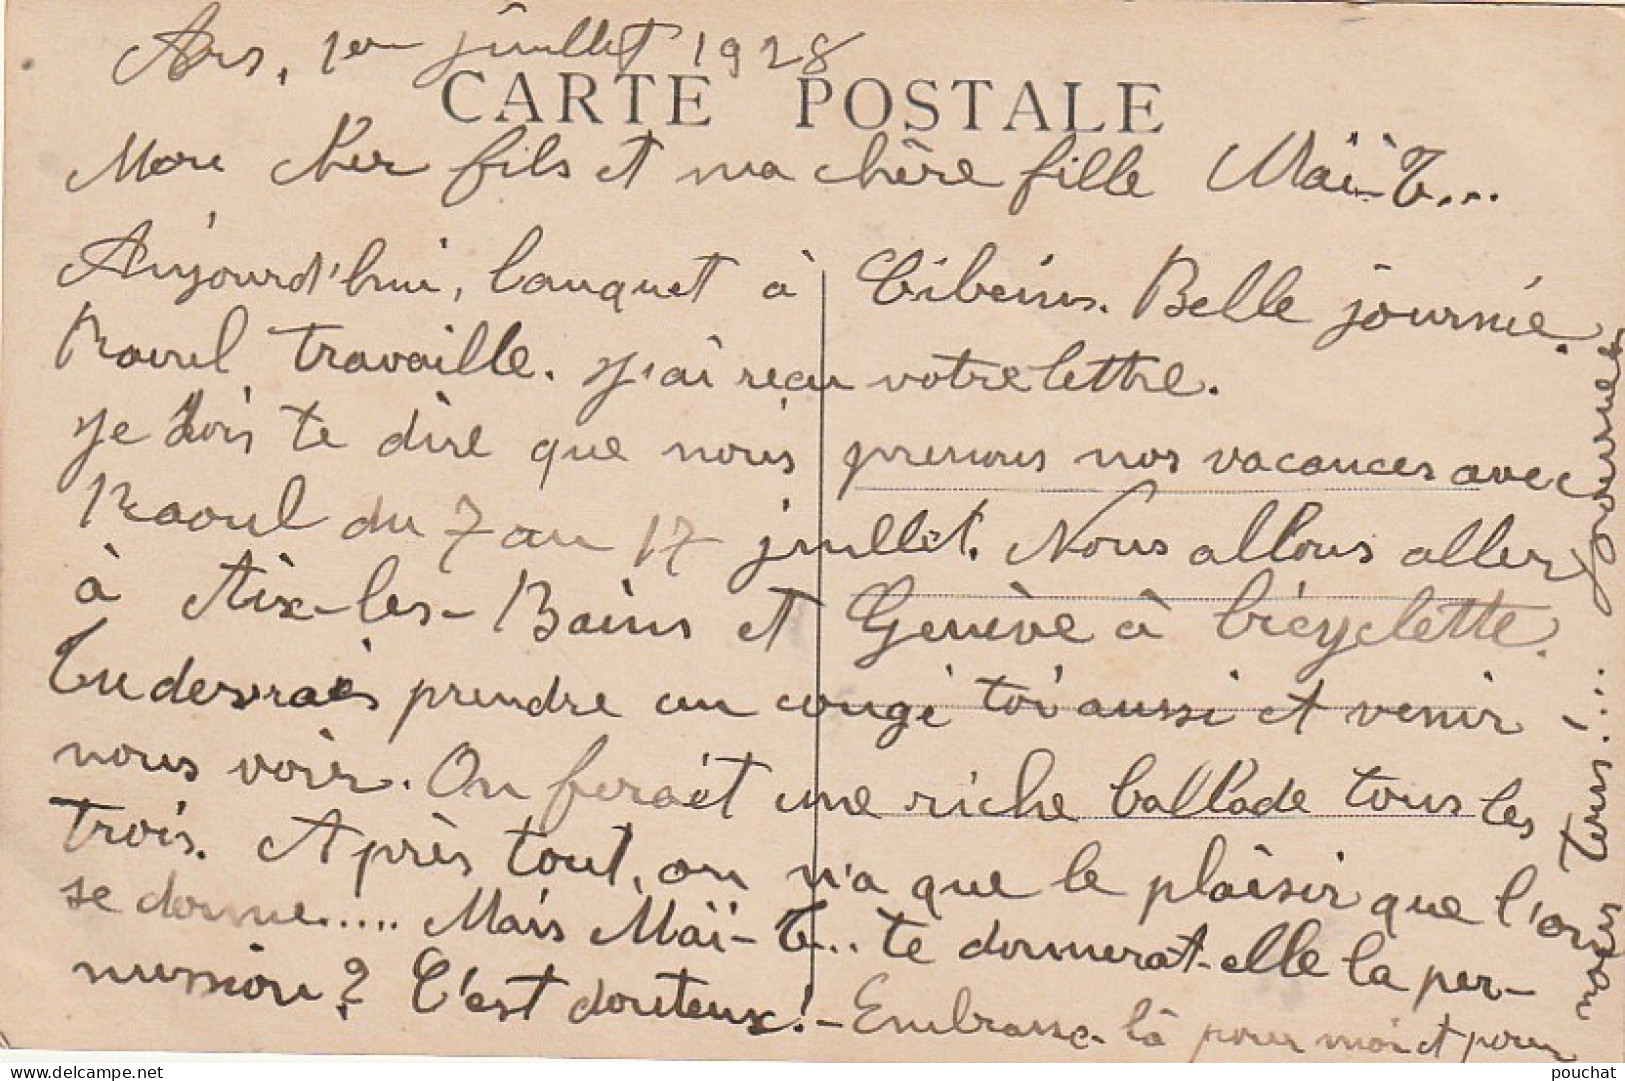 Ars, 1er juillet 1928
CARTE POSTALE
Mon cher fils et ma chère fille Maï-T...
Aujourd'hui, banquet à Cibeins. Belle journée.
Raoul travaille. J'ai reçu votre lettre.
Je dois te dire que nous prenons nos vacances avec
Raoul du 7 au 17 juillet. Nous allons aller
à Aix-les-Bains et Genève à bicyclette.
Tu devrais prendre un congé toi aussi et venir
nous voir. On ferait une riche ballade tous les
trois. Après tout, on n'a que le plaisir que l'on
se donne..... Mais Maï-T... te donnerat-elle la per-
mission? C'est douteux! - Embrasse-là pour moi et pour
nous tous!....
pouchat